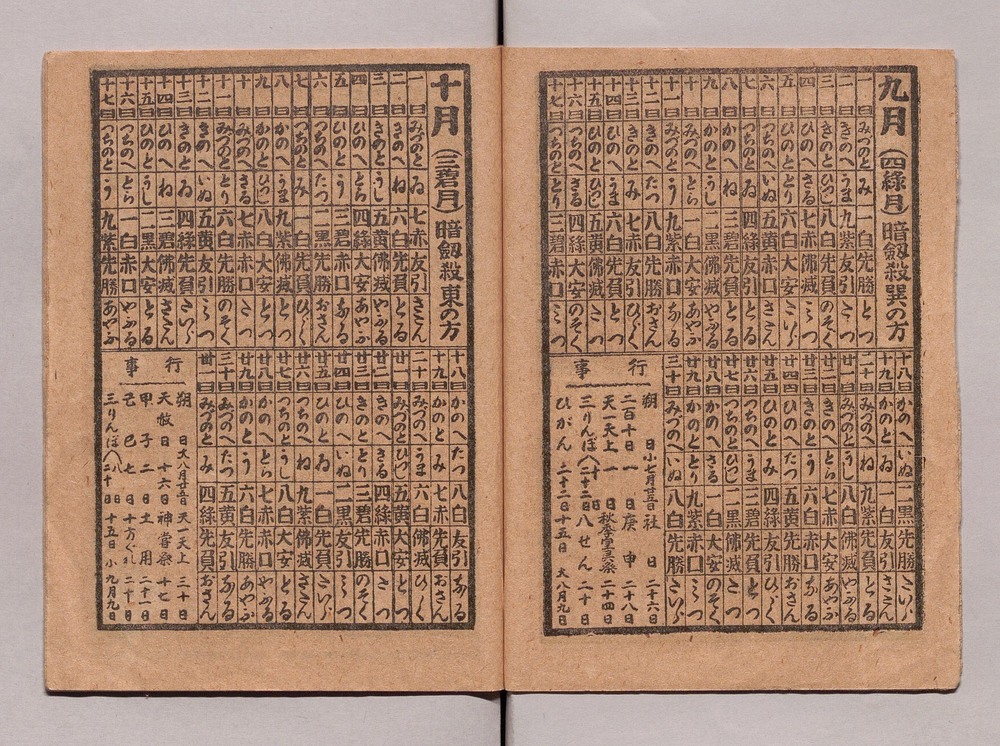 九月(四緑月)暗劔殺巽の方
一日みづのとみ一白先勝とつ
二日きのへうま九紫友引たつ
三日きのとひつじ八白先負のそく
四日ひのへさる七赤佛滅みつ
五日ひのととり六白大安たいら
六日つちのへいぬ五黄赤口ささん
七日つちのとゐ四緑友引とる
八日かのへね三碧先負とる
九日かのとうし二黒佛滅やふる
十日みつのへとら一白大安あやふ
十一日みつのとう九紫赤口なる
十二日きのへたつ八白先勝おさん
十三日きのとみ七赤友引ひらく
十四日ひのへうま六白先負とつ
十五日ひのとひつじ五黄佛滅たつ
十六日つちのへさる四緑大安のそく
十七日つちのととり三碧赤口みつ
十八日かのへいぬ二黒先勝たいら
十九日かのとゐ一白友引ささん
二十日みつのへね九紫先負とる
廿一日みつのとうし八白佛滅やふる
廿二日きのへとら七赤大安あやふ
廿三日きのとう六白赤口なる
廿四日ひのへたつ五黄先勝おさん
廿五日ひのとみ四緑友引ひらく
廿六日つちのへうま三碧先負とつ
廿七日つちのとひつじ二黒佛滅たつ
廿八日かのへさる一白大安のそく
廿九日かのととり九紫赤口みつ
三十日みつのへいぬ八白先勝たいら
行事
朔日小七月廿五日社日二十六日
二百十日一日庚申二十八日
天一天上一日秋季皇灵祭二十四日
三りんぼ八せん二十日
ひがん二十一日十五日大八月九日
十月(三碧月)暗劔殺東の方
一日みづのとゐ七赤友引ささん
二日きのへね六白先負とる
三日きのとうし五黄佛滅やふる
四日ひのへとら四緑大安あやふ
五日ひのとう三碧赤口なる
六日つちのへたつ二黒先勝おさん
七日つちのとみ一白先負ひらく
八日かのへうま九紫佛滅とつ
九日かのとひつじ八白大安とつ
十日みつのへさる七赤赤口たつ
十一日みつのととり六白先勝のそく
十二日きのへいぬ五黄友引みつ
十三日きのとゐ四緑先負たいら
十四日ひのへね三碧佛滅ささん
十五日ひのとうし二黒大安とる
十六日つちのへとら一白赤口やふる
十七日つちのとう九紫先勝あやふ
十八日かのへたつ八白友引なる
十九日かのとみ七赤先負おさん
二十日みつのへうま六白佛滅ひらく
廿一日みつのとひつじ五黄大安とつ
廿二日きのへさる四緑赤口たつ
廿三日きのととり三碧先勝のそく
廿四日ひのへいぬ二黒友引みつ
廿五日ひのとゐ一白先負たいら
廿六日つちのへね九紫佛滅ささん
廿七日つちのとうし八白大安とる
廿八日かのへとら七赤赤口やふる
廿九日かのとう六白先勝あやふ
三十日みつのへたつ五黄友引なる
卅一日みつのとみ四緑先負おさん
行事
朔日大八月廿五日天一天上三十日
天赦日十六日神嘗祭十七日
甲子二日土用二十一日
己巳七日十方ぐれ二十二日
三りんぼ八日二十日十五日小九月九日